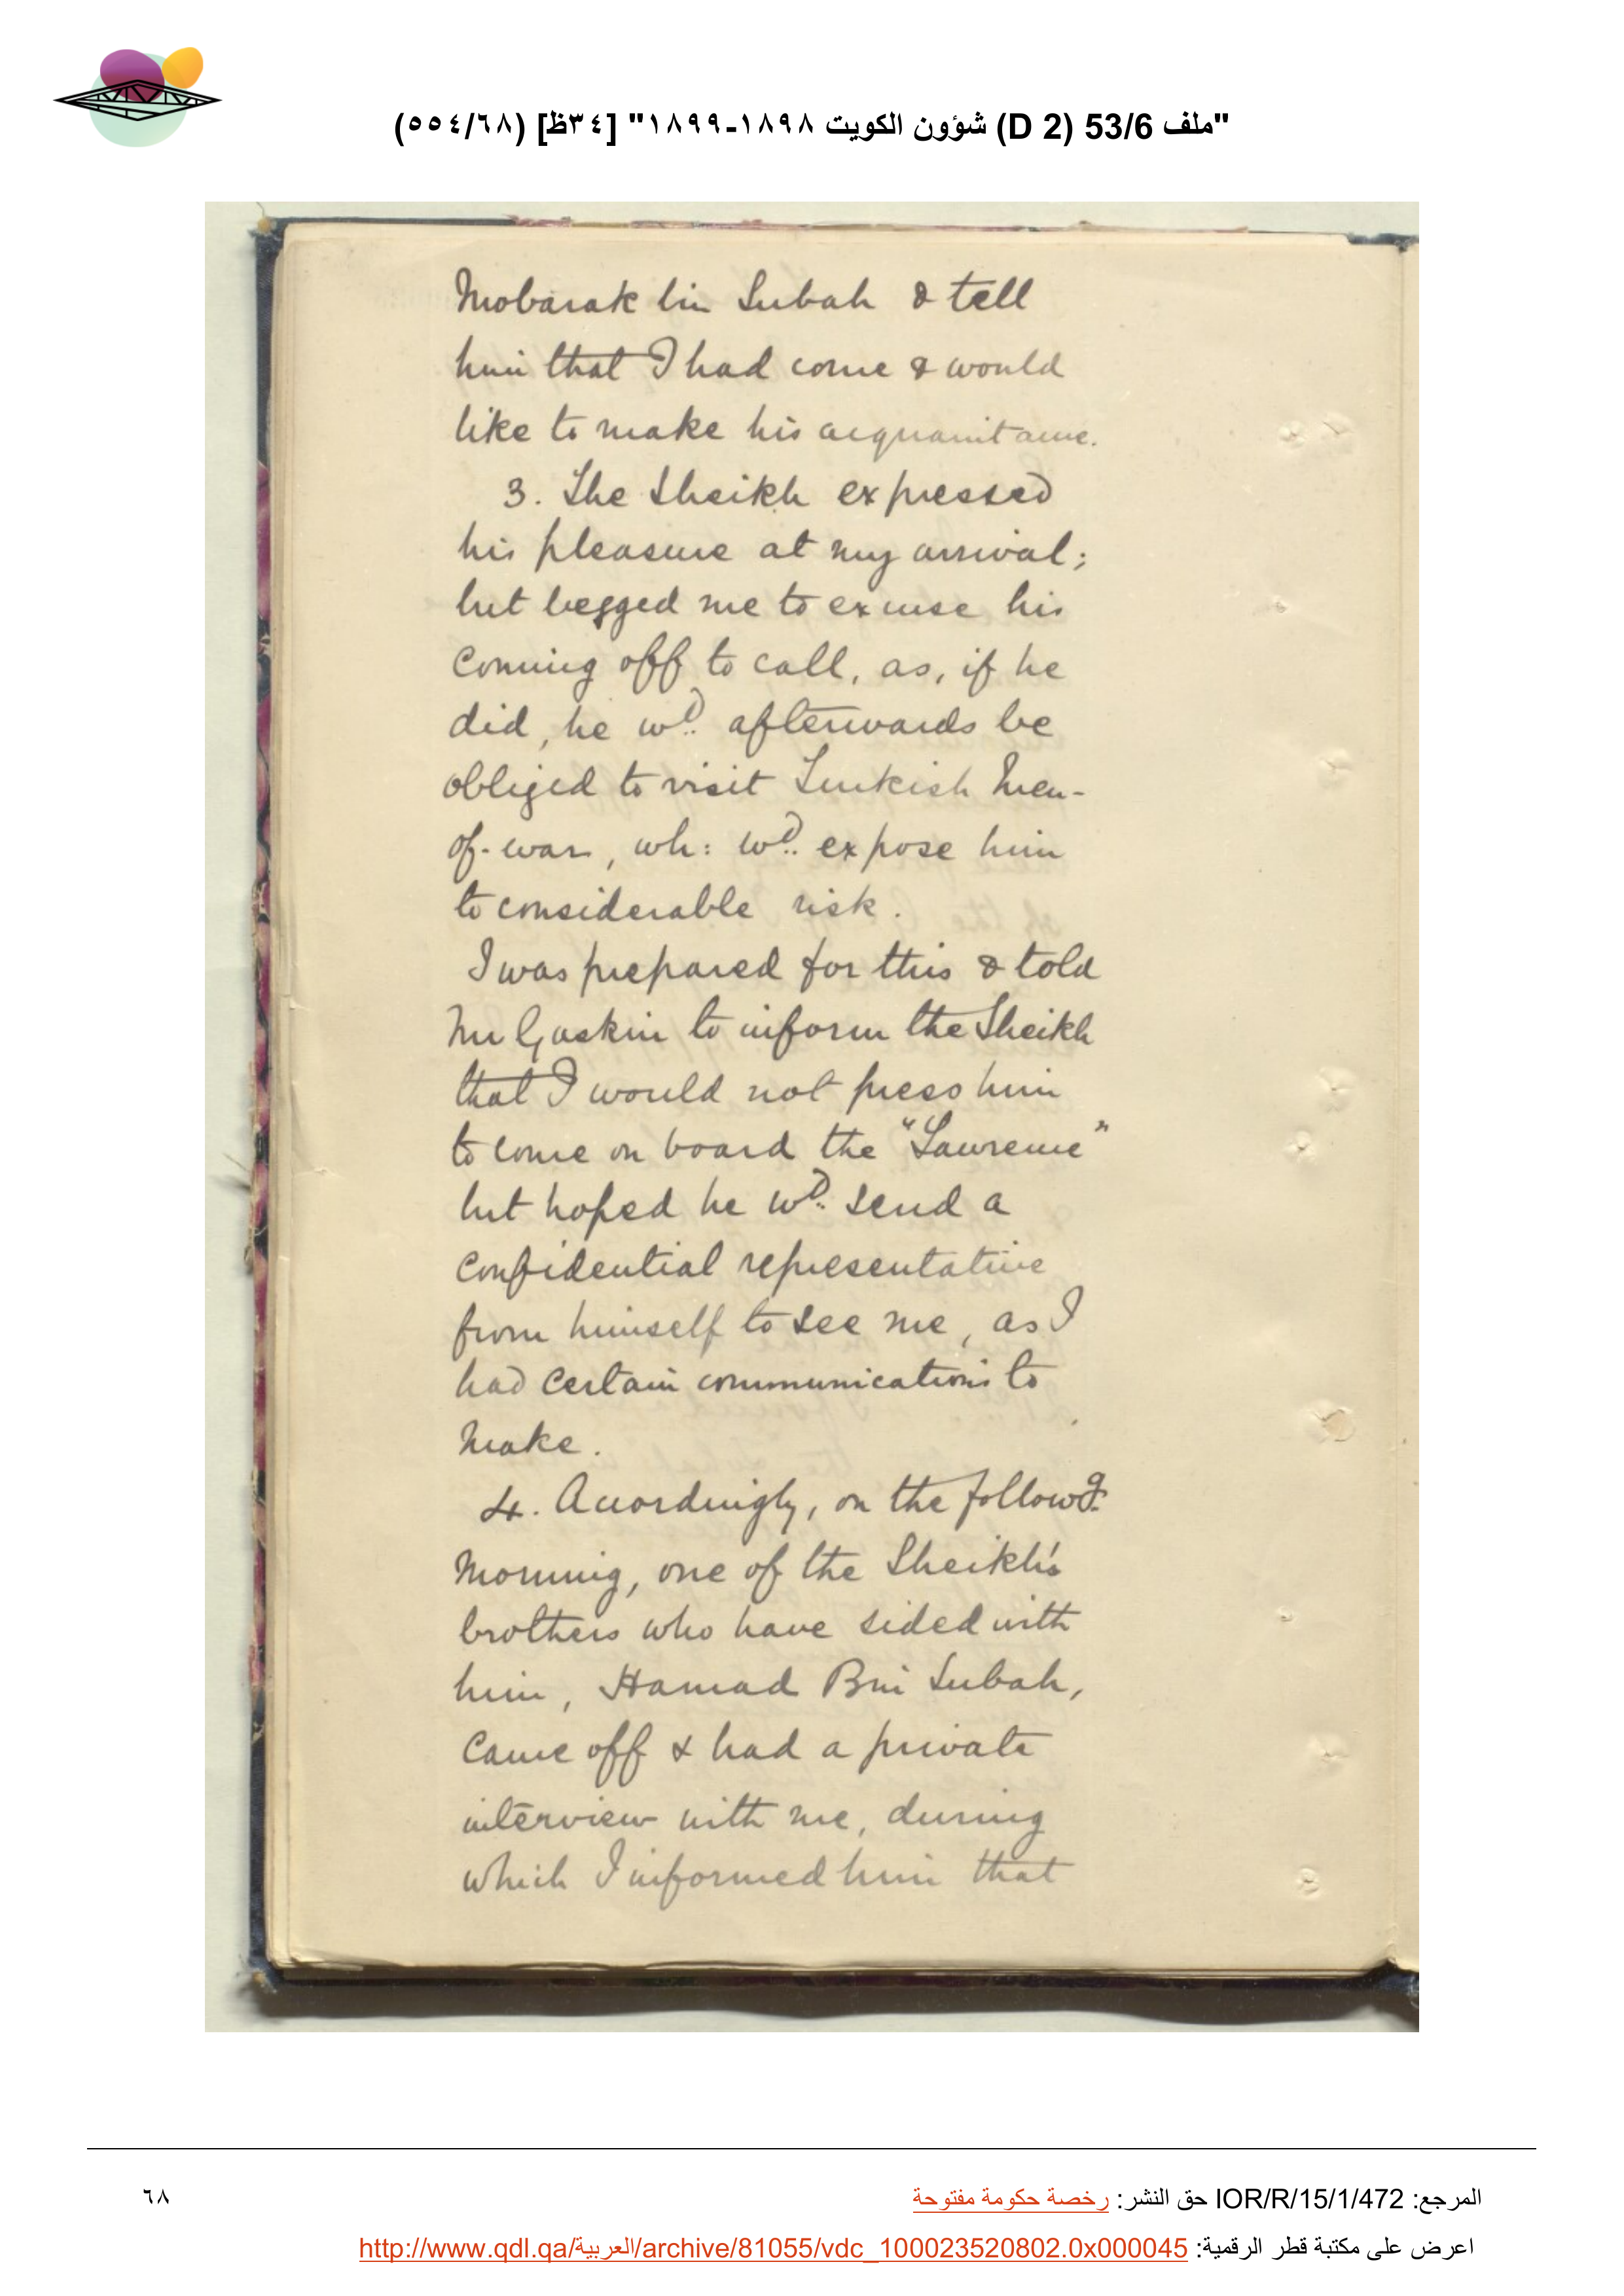 "ملف 53/6 (D 2) شؤون الكويت ١٨٩٨-١٨٩٩" [٣٤ظ] (٥٥٤/٦٨)
Mobarak bin Subah & tell
him that I had come & would
like to make his acquaintance.
3. The Sheikh expressed
his pleasure at my arrival;
but begged me to excuse his
coming off to call, as, if he
did, he wd. afterwards be
obliged to visit Turkish Men-
of-war, wh: wd. expose him
to considerable risk.
I was prepared for this & told
Mr Gaskin to inform the Sheikh
that I would not press him
to come on board the "Lawrence"
but hoped he wd. send a
confidential representative
from himself to see me, as I
had certain communications to
make.
4. Accordingly, on the followg.
Morning, one of the Sheikh's
brothers who have sided with
him, Hamad Bin Subah,
came off & had a private
interview with me, during
which I informed him that
المرجع: IOR/R/15/1/472 حق النشر: رخصة حكومة مفتوحة
٦٨
اعرض على مكتبة قطر الرقمية: http://www.qdl.qa/العربية/archive/81055/vdc_100023520802.0x000045